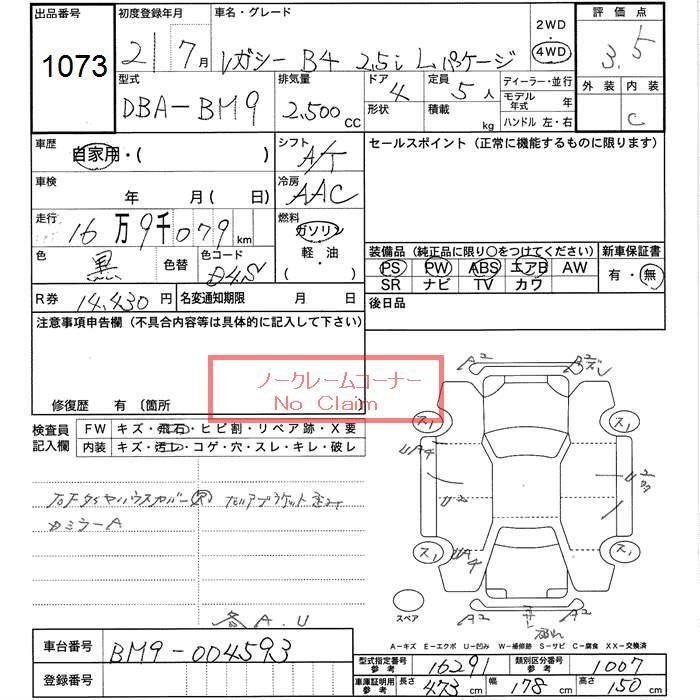 出品番号 初度登録年月 車名・グレード 2WD 評価点
1073 21 7月 レガシー B4 2.5i Lパッケージ 4WD 3.5
型式 排気量 ドア 4 定員 5人 ディーラー・並行 外装 内装
DBA-BM9 2,500 CC 形状 積載 kg モデル年式 年 C
ハンドル 左・右
車歴 自家用・( ) シフト A/T セールスポイント(正常に機能するものに限ります)
車検 年 月(日) 冷房 AAC
走行 16万9千079km 燃料 ガソリン
色 黒 色替 色コード D4S 軽・油 ( )
装備品(純正品に限り○をつけてください) 新車保証書
PS PW ABS エアB AW 有・無
SR ナビ TV カワ
R券 14,430円 名変通知期限 月 日 後日品
注意事項申告欄(不具合内容等は具体的に記入して下さい)
ノークレームコーナー
No Claim
修復歴 有〔箇所 〕
検査員記入欄 FW キズ・飛石・ヒビ割・リペア跡・X要
内装 キズ・汚レ・コゲ・穴・スレ・キレ・破レ
ミラーA
各A.U
A2
A2
A2
スペア
A-キズ E-エクボ U-凹み W-補修跡 S-サビ C-腐食 XX-交換済
車台番号 BM9-004593
登録番号
型式指定番号 参考 16291 類別区分番号 参考 1007
車庫証明用 参考 長さ 473cm 幅 178cm 高さ 150cm